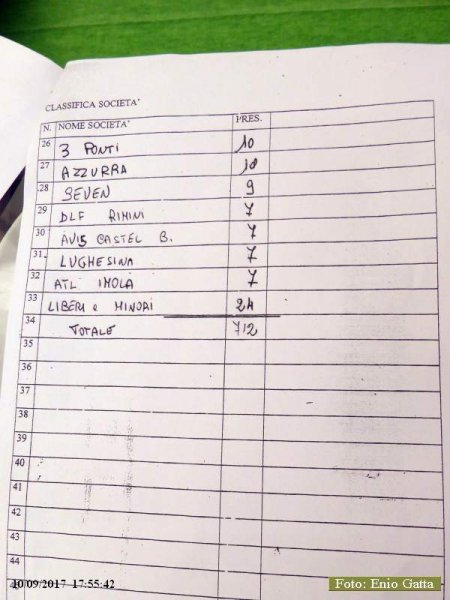 CLASSIFICA SOCIETA'
N. NOME SOCIETA' PRES.
26 3 PONTI 10
27 AZZURRA 10
28 SEVEN 9
29 DLF RIMINI 7
30 AVIS CASTEL B. 7
31 LUGHESINA 7
32 ATL IMOLA 7
33 LIBERI e MINORI 24
34 TOTALE 712
35
36
37
38
39
40
41
42
43
44
10/09/2017 17:55:42
Foto: Enio Gatta